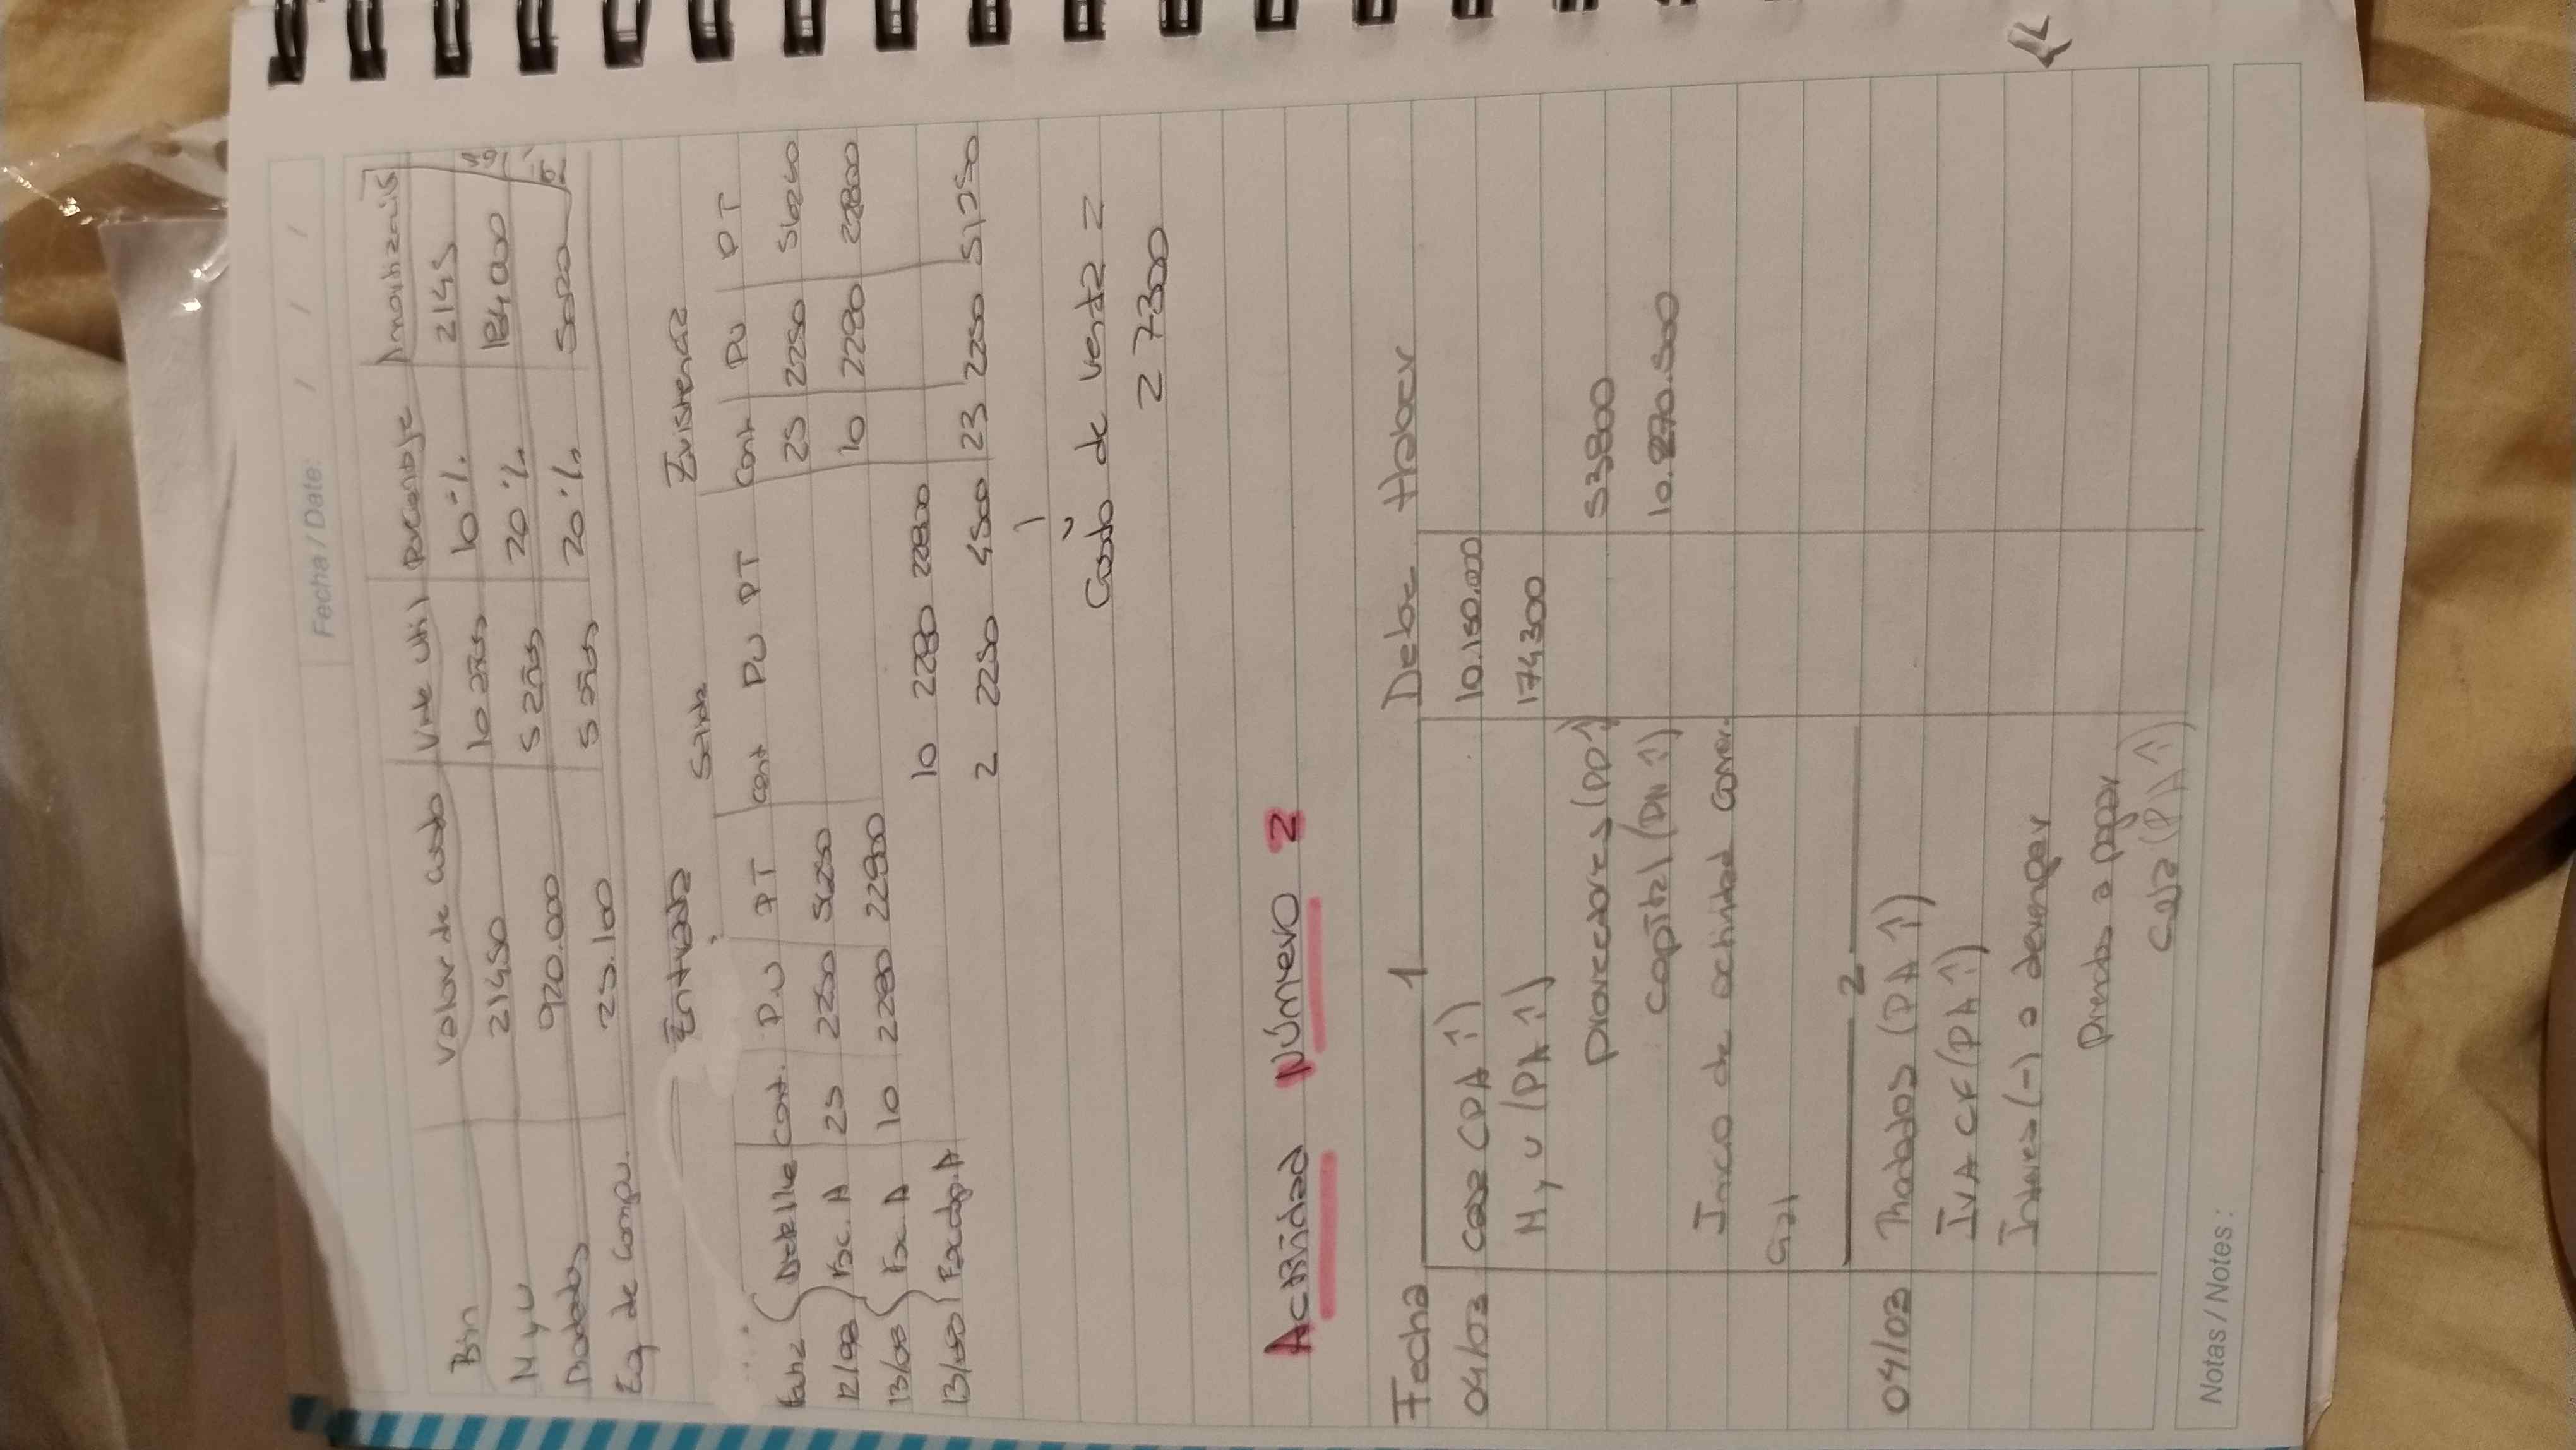 Fecha / Date: / / /
Bin Valor de costo Vida util porcentaje Amortización
M y U 21450 10 años 10 % 2145
Rodados 920.000 5 años 20 % 184000
Eq. de Compu. 25.100 5 años 20 % 5020
Entrada Salida Existencia
Fecha Detalle Cant. P.U PT Cant PU PT Cant PU PT
12/03 Fac. A 25 2250 56250 25 2250 56250
13/03 Fac. A 10 2280 22800 10 2280 22800
13/03 Fac dup. A 10 2280 22800
2 2250 4500 23 2250 51750
Costo de venta =
27300
Actividad Número 2
Fecha Debe Haber
1
04/03 Caja (PA↑) 10.150.000
M y U (PA↑) 174300
proveedores (PP↑) 53800
Capital (PN↑) 10.270.500
Inicio de actividad comer
cial
2
04/03 Rodados (PA↑)
IVA CF (PA↑)
Interes (-) a devengar
prenda a pagar
Caja (PA↑)
Notas / Notes: